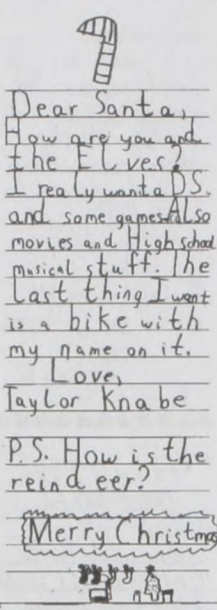 Dear Santa,
How are you and
the Elves?
I realy want a DS.
and some games. Also
movies and High school
musical stuff. The
Last thing I want
is a bike with
my name on it.
Love,
Taylor Knabe
P.S. How is the
reindeer?
Merry Christmas